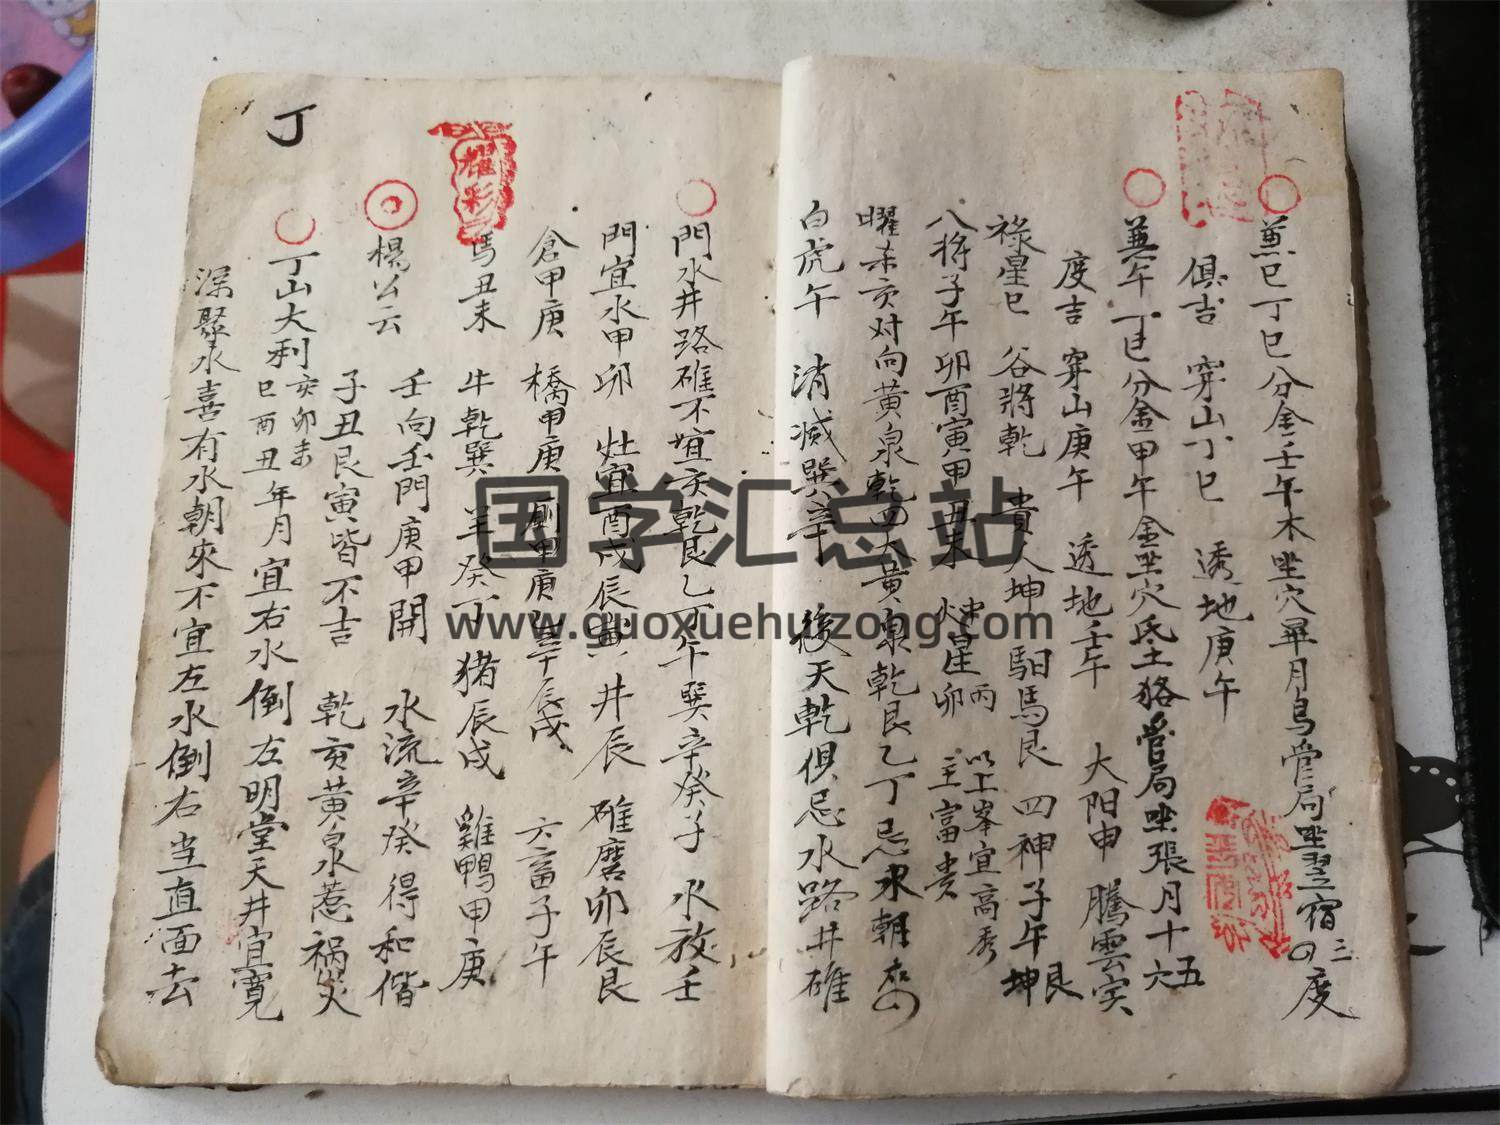 兼巳丁巳分金壬午木坐穴畢月烏管局坐翌宿三四度
俱吉 穿山丁巳 透地庚午
兼午丁巳分金甲午金坐穴氐土狢管局坐張月十五六
度吉 穿山庚午 透地壬午 大阳申 騰雲寅
祿星巳 谷將乾 貴人坤 馹馬艮 四神子午坤艮
八將子午卯酉寅甲丑未 灶星卯 丙 主富貴 以上峯宜高秀
曜未亥对向黄泉乾四大黄泉乾艮乙丁忌水朝
白虎午 消滅巽辛 後天乾俱忌水路井碓
門水井路碓不宜亥乾艮乙丁午巽辛癸子 水放壬
門宜水甲卯 灶宜酉戌辰 井辰 碓磨卯辰艮
倉甲庚 橋甲庚 厠甲庚 辰戌 六畜子午
馬丑未 牛乾巽 羊癸丁 猪辰戌 雞鴨甲庚
楊公云 壬向壬門庚甲開 水流辛癸得和偕
子丑艮寅皆不吉 乾亥黄泉水惹禍災
丁山大利亥卯未巳酉丑年月宜右水倒左明堂天井宜寬
深聚水喜有水朝來不宜左水倒右当直面去
丁
耀彩
国学汇总站
www.guoxuehuizong.com